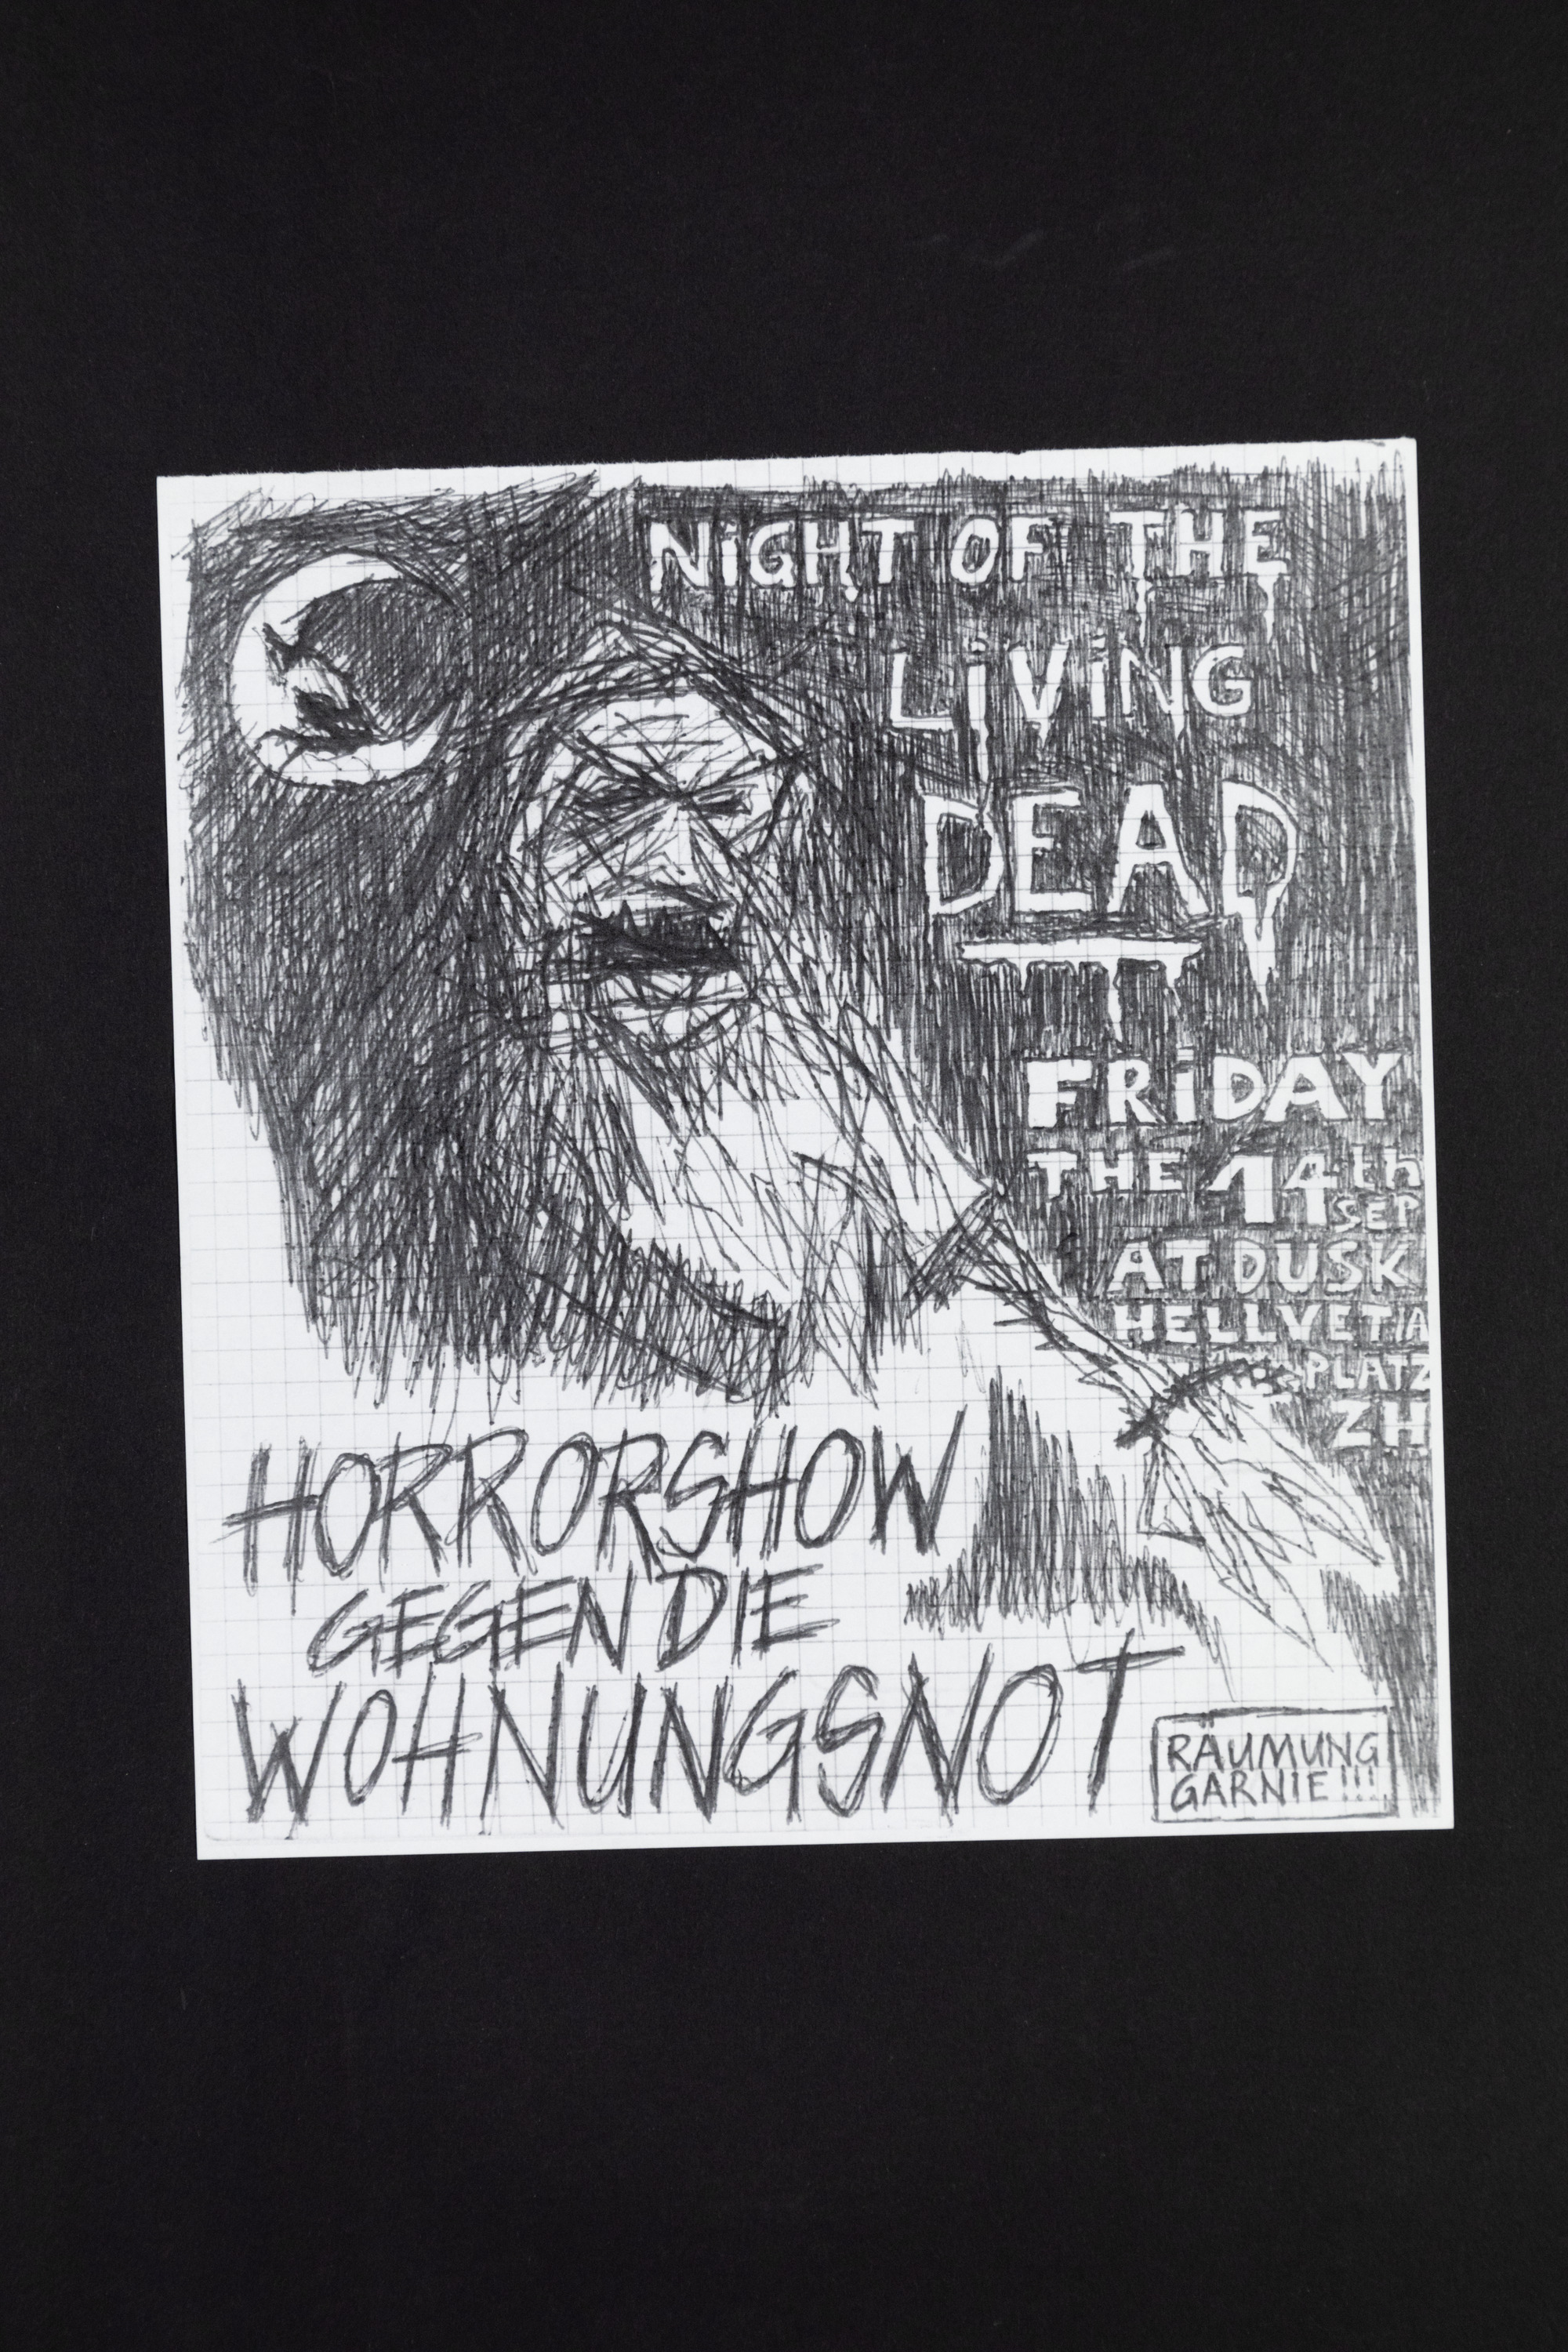 NiGHT OF THE
LiViNG
DEAD
FRiDAY
THE 14th
SEP
AT DUSK
HELLVETIA
PLATZ
ZH
HORRORSHOW
GEGEN DIE
WOHNUNGSNOT
RÄUMUNG
GARNIE!!!